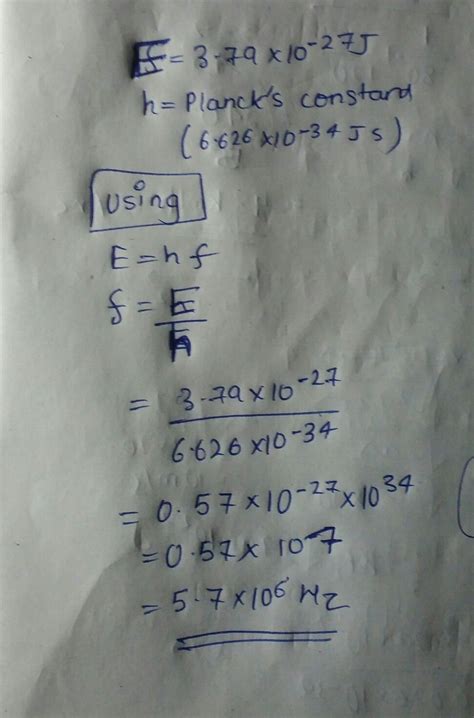 E = 3.79 × 10⁻²⁷J
h = Planck's constard
(6.626×10⁻³⁴ J s)
Using
E = h f
f = E
h
= 3.79 × 10⁻²⁷
6.626 ×10⁻³⁴
= 0.57 × 10⁻²⁷ × 10³⁴
= 0.57 × 10⁷
= 5.7 × 10⁶ Hz